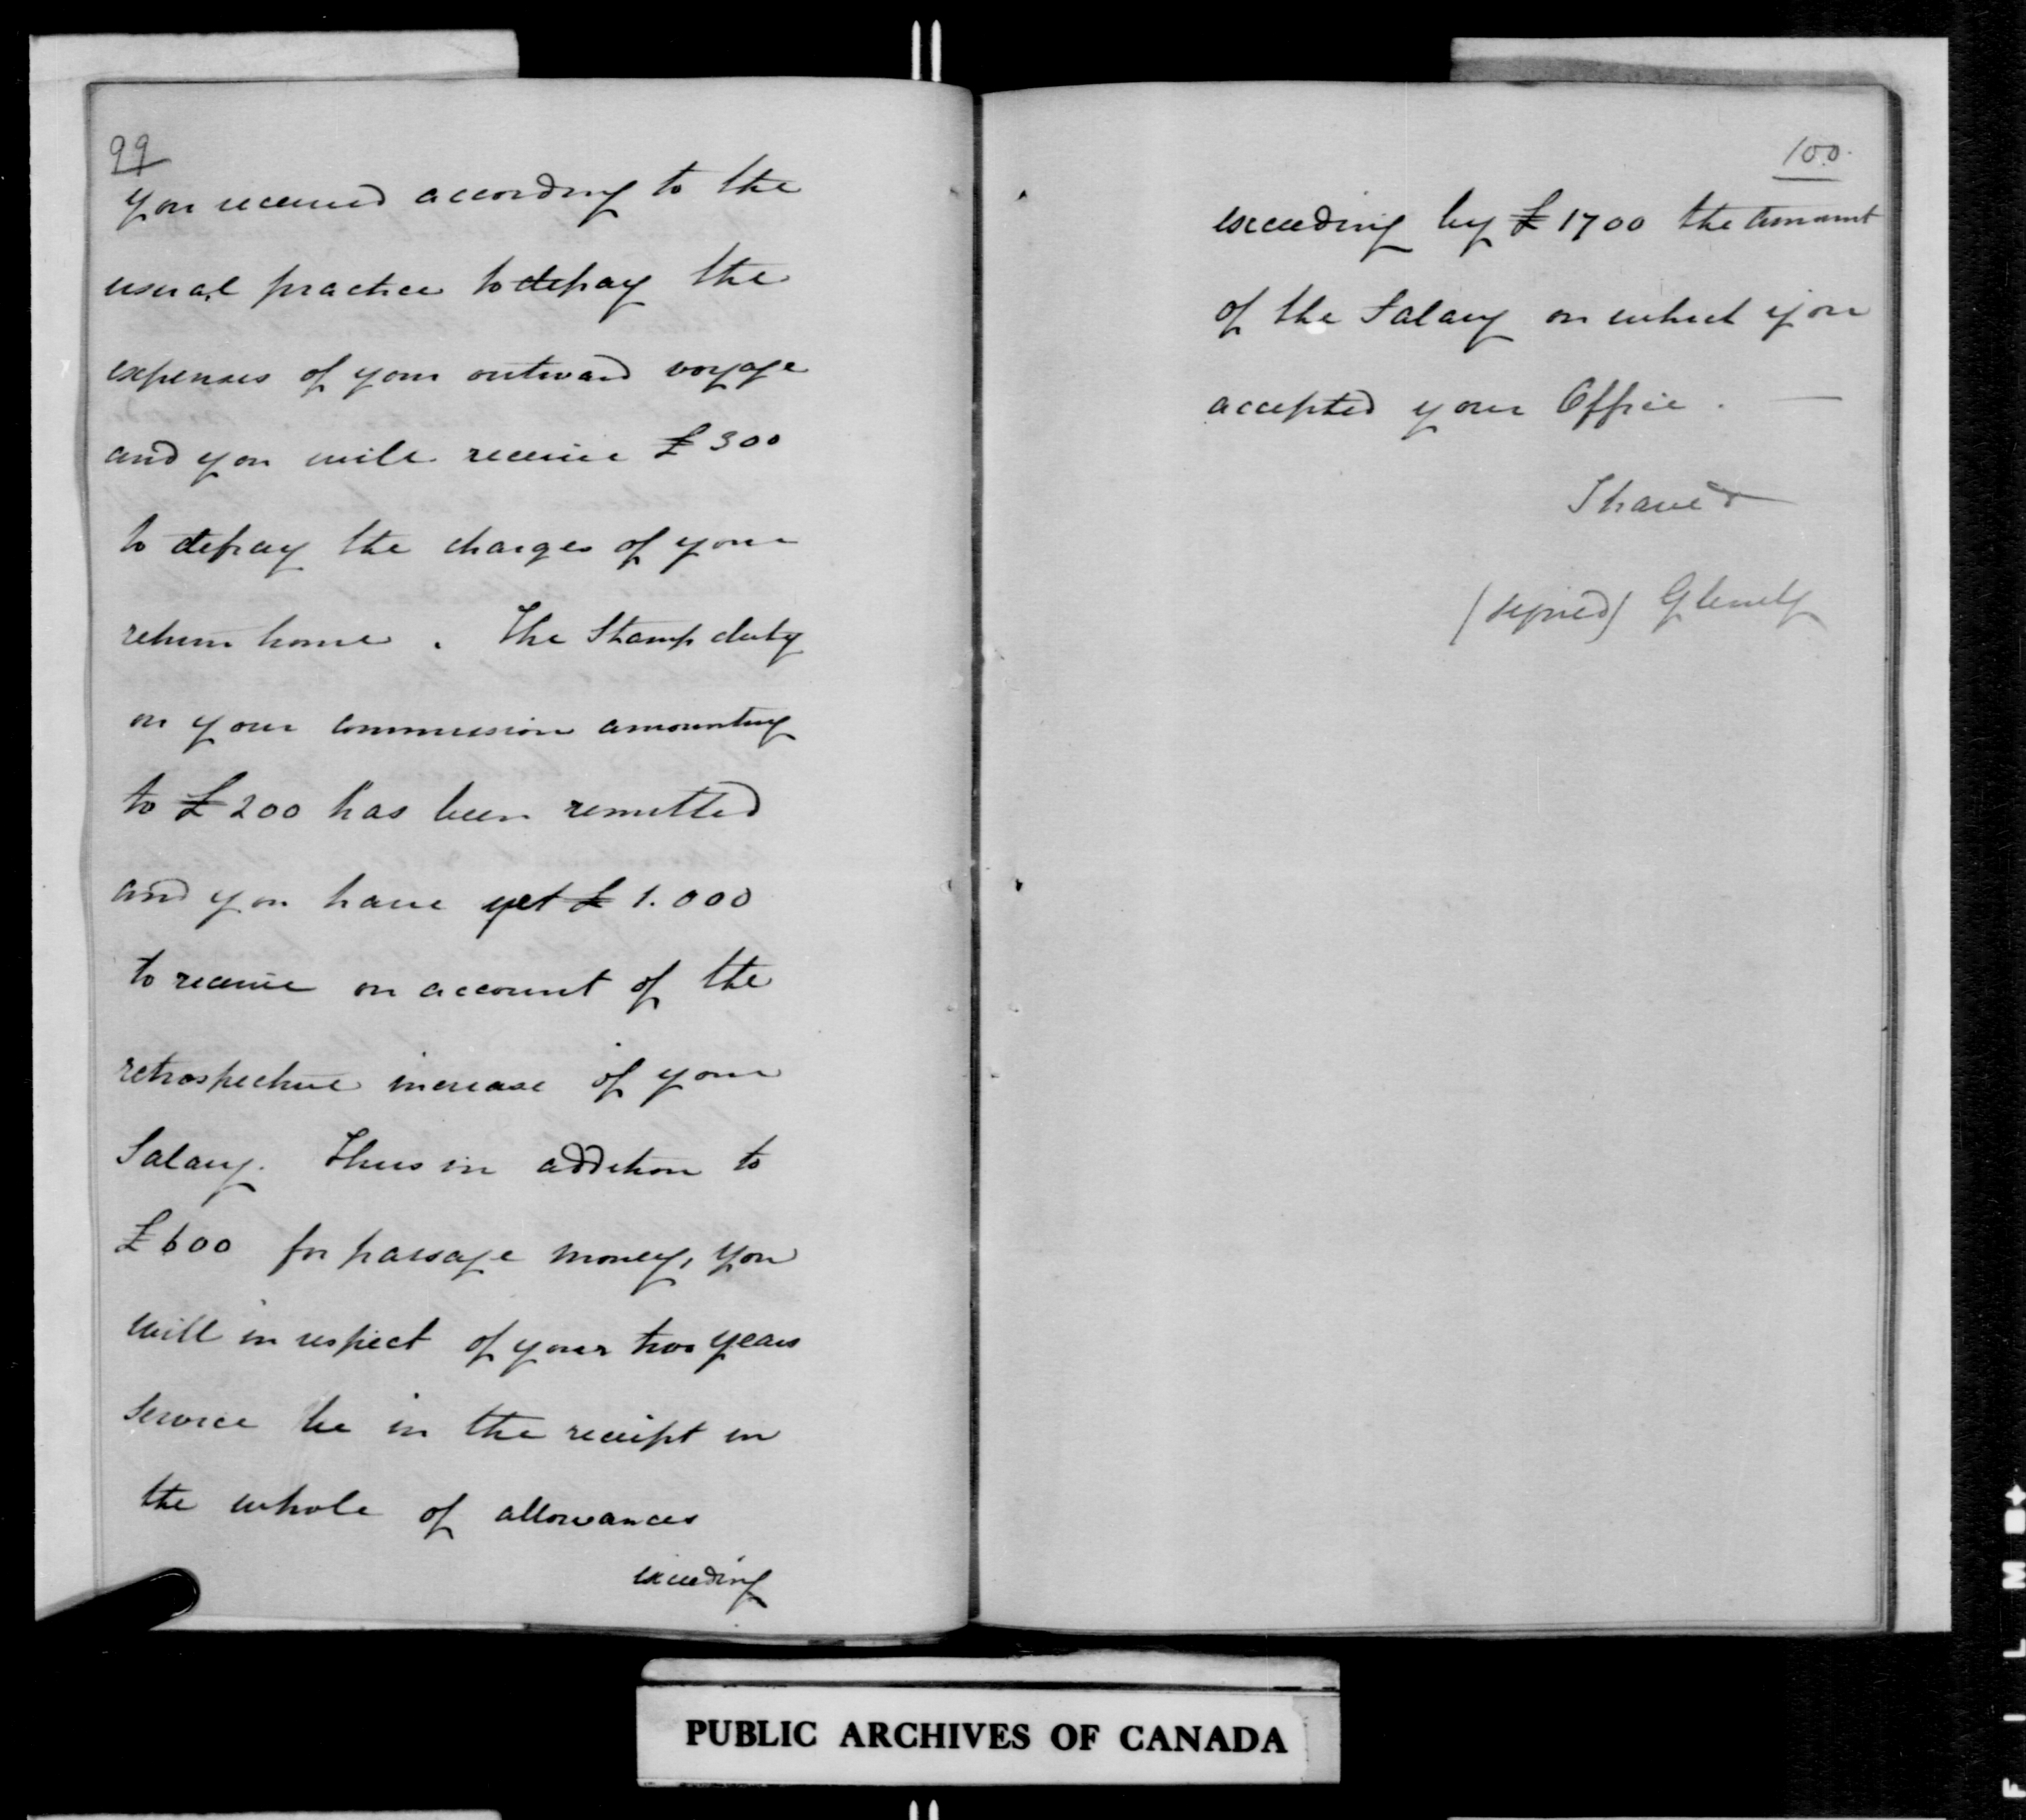 99
you received according to the
usual practice to defray the
expenses of your outward voyage
and you will receive £300
to defray the charges of your
return home. The Stamp duty
on your commission amounting
to £200 has been remitted
and you have yet £1.000
to receive on account of the
retrospective increase of your
Salary. Thus in addition to
£600 for passage money, you
will in respect of your two years
service be in the receipt in
the whole of allowances
exceeding
100.
exceeding by £1700 the amount
of the Salary on which you
accepted your Office. —
I have &
(signed) Glenelg
PUBLIC ARCHIVES OF CANADA
FILM